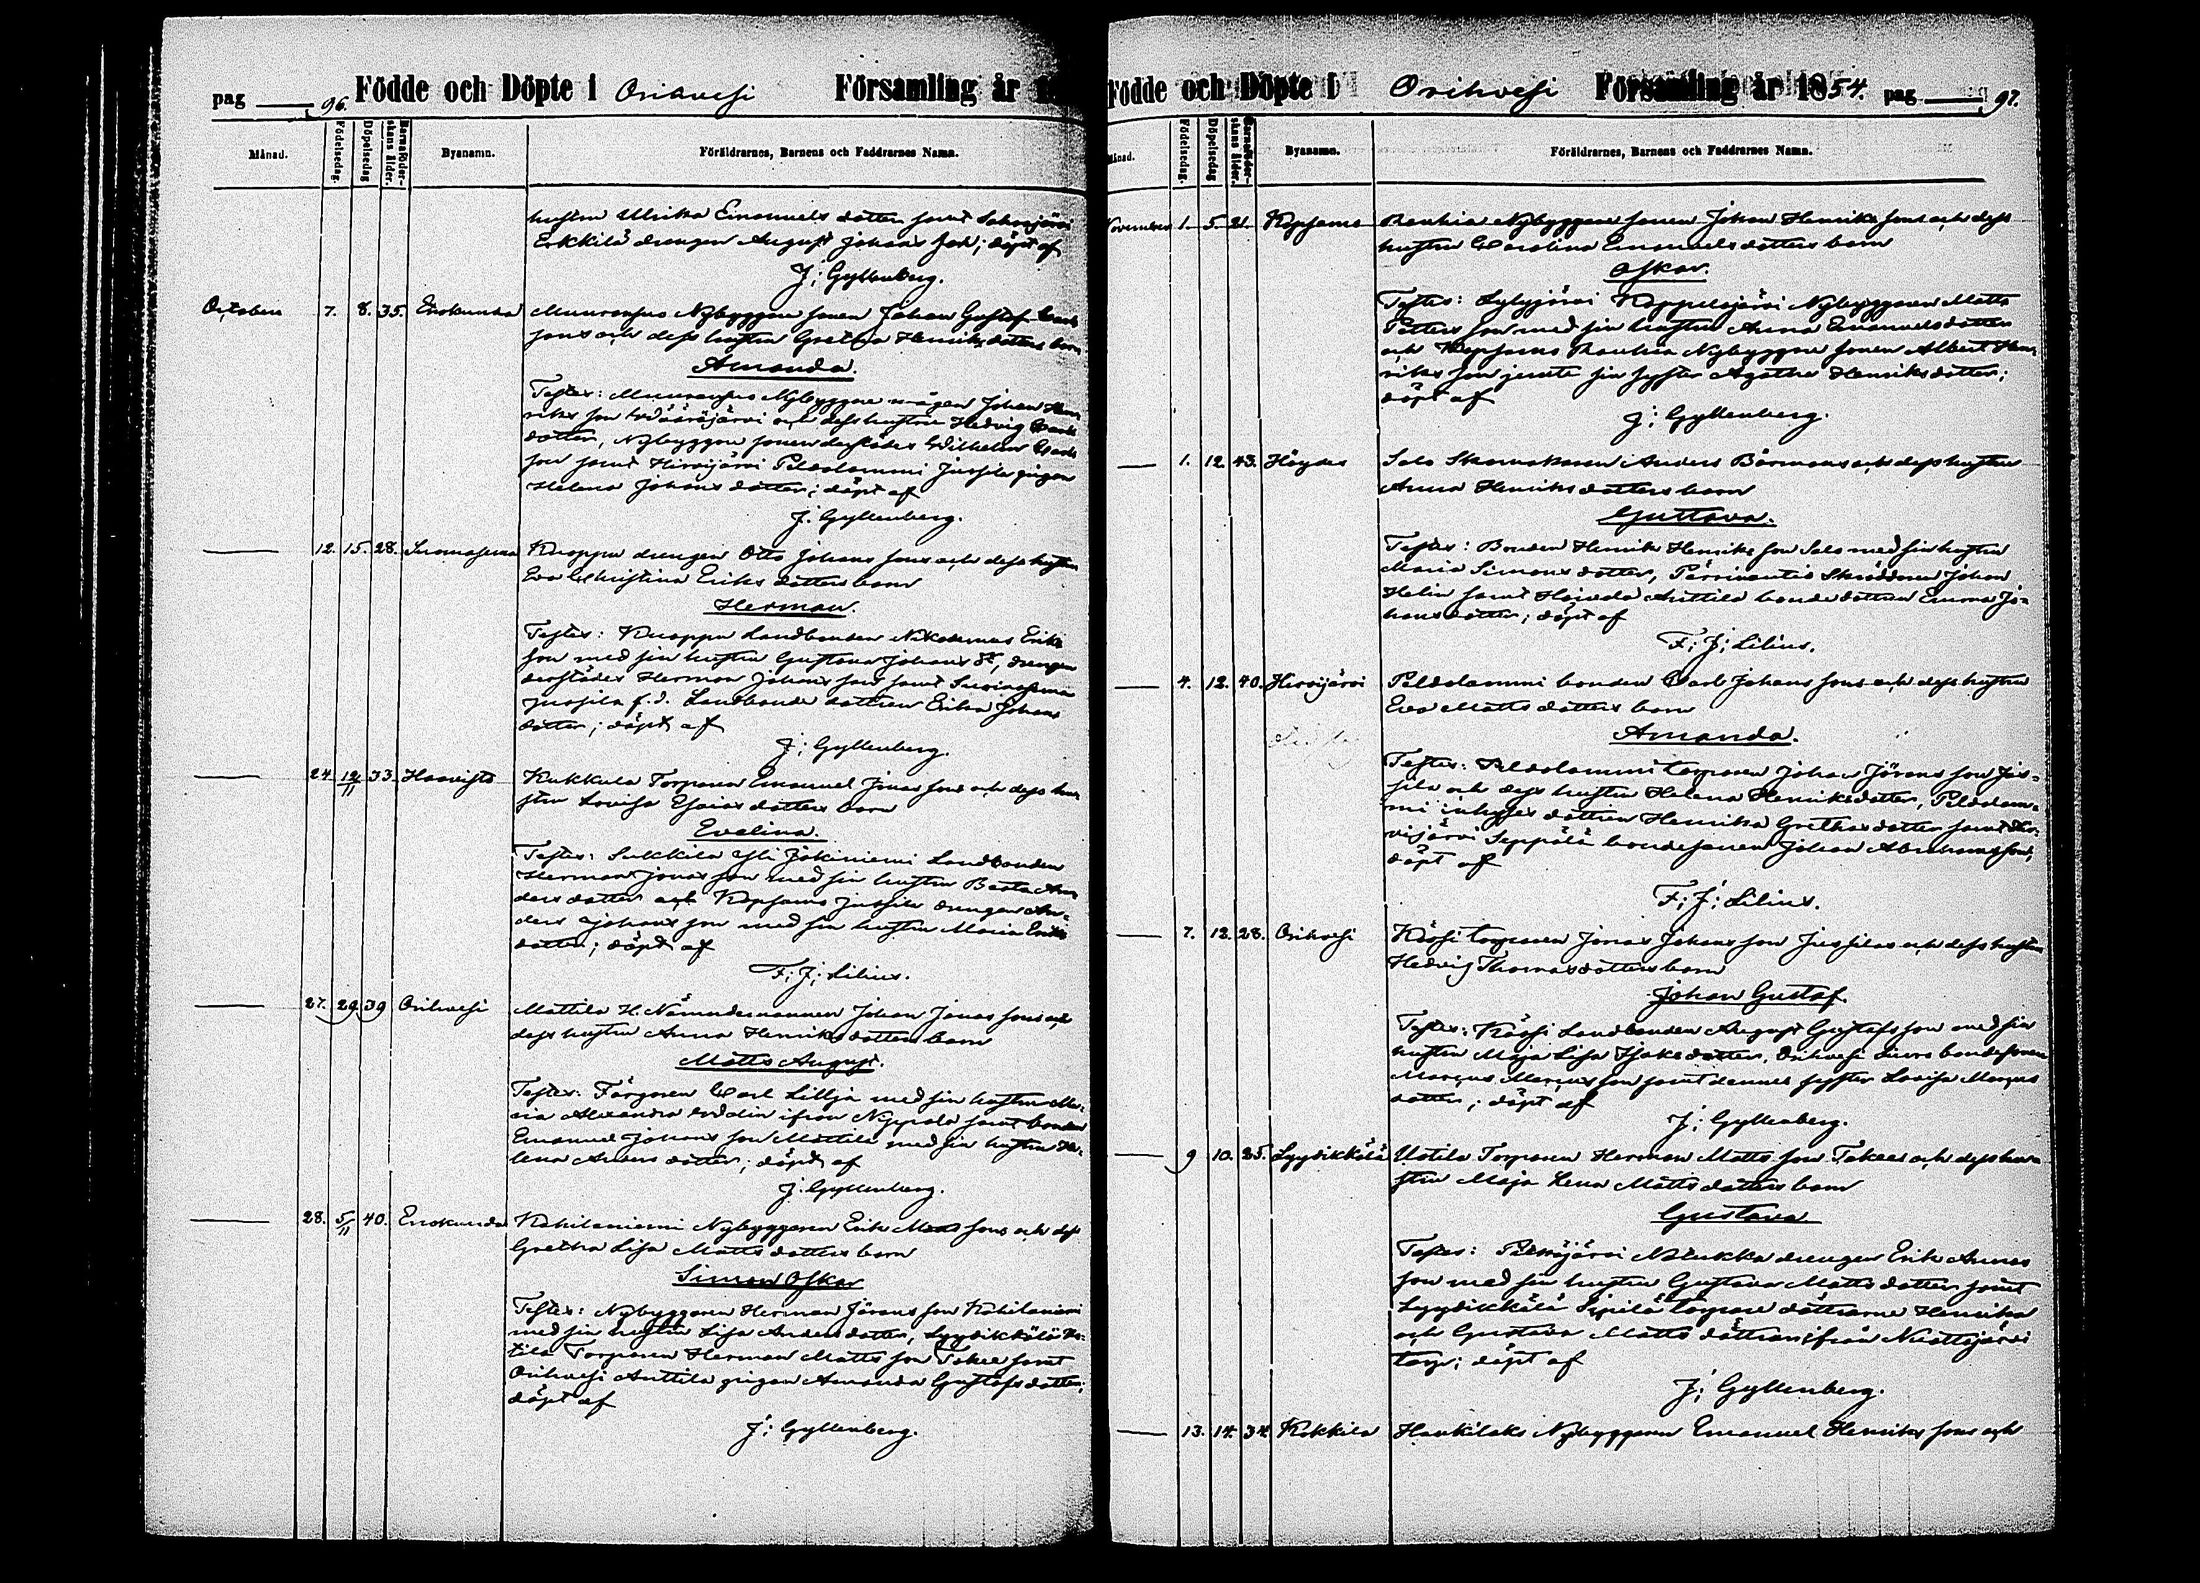 pag 96. Födde och Döpte i Orihvesi Församling år 1
Månad. Födelsedag. Döpelsedag Barnaföder-skans ålder. Bynamn. Föräldrarnes, Barnens och Faddrarnes Namn.
hustru Ulrika Emanuels dotter samt
Erkkilä drengen August Johans son; döpt af
J: Gyllenberg.
October 7. 8. 35. Enokunda Nybyggare sonen Johan Gustaf Carls
sons och dess hustru Gretha Henriks dotters barn
Amanda.
Testes: Nybyggare mågen Johan Hen-
riks son Wääräjärvi och dess hustru Hedvig Carls
dotter, Nybyggare sonen derstädes Wilhelm Carls
son samt Hirvijärvi Peldolammi Jussila pigan
Helena Johans dotter; döpt af
J. Gyllenberg.
12. 15. 28. Knoppu drengen Otto Johans sons och dess hustru
Eva Christina Eriks dotters barn
Herman.
Testes: Knoppu Landbonden Nikodemus Eriks
son med sin hustru Gustava Johans dr, drengen
derstädes Herman Johans son samt
Jussila f.d. Landbonde dottren Erika Johans
dotter; döpt af
J; Gyllenberg.
24. 12/11 33. Haavisto Kukkula Torparen Emanuel Jonas sons och dess hu-
stru Lovisa Esaias dotters barn
Evelina.
Testes: Sukkila Yli Jokiniemi Landbonden
Herman Jonas son med sin hustru Beata An-
ders dotter och Kopsamo Jussila drengen An-
ders Johans son med sin hustru Maria Eriks
dotter; döpt af
F; J; Lilius.
27. 29. 39 Orihvesi Mattila H. Nämndemannen Johan Jonas sons och
dess hustru Anna Henriks dotters barn
Matts August.
Testes: Färgaren Carl Lillja med sin hustru Ma-
ria Alexandra ifrån samt bonden
Emanuel Johans son Mattila med sin hustru He-
lena Anders dotter; döpt af
J. Gyllenberg.
28. 5/11 40. Enokunda Kahilaniemi Nybyggaren Erik Matts sons och dess
Gretha Lisa Matts dotters barn
Simon Oskar
Testes: Nybyggaren Herman Jörans son Kahilaniemi
med sin hustru Lisa Anders dotter, Lyydikkälä Uo-
tila Torparen Herman Matts son Takee samt
Orihvesi Anttila pigan Amanda Gustafs dotter;
döpt af
J: Gyllenberg.
Födde och Döpte i Orihvesi Församling år 1854. pag 97.
Månad. Födelsedag. Döpelsedag Barnaföder-skans ålder. Bynamn. Föräldrarnes, Barnens och Faddrarnes Namn.
November 1. 5. 21. Kopsamo Rauhia Nybyggare sonen Johan Henriks sons och dess
hustru Carolina Emanuels dotters barn
Oskar.
Testes: Koppelojärvi Nybyggaren Matts
Petters son med sin hustru Anna Emanuels dotter
och Kopsamo Rauhia Nybyggare sonen Albert Hen-
riks son jemte sin syster Agatha Henriks dotter;
döpt af
J; Gyllenberg.
1. 12. 43. Salo Skomakaren Anders Bärmans och dess hustru
Anna Henriks dotters barn
Gustava.
Testes: Bonden Henrik Henriks son Salo med sin hustru
Maria Simons dotter, Skräddaren Johan
Helin samt Anttila bonde dottren Emma Jo-
hans dotter; döpt af
F; J; Lilius.
4. 12. 40. Hirvijärvi Peldolammi bonden Carl Johans sons och dess hustru
Eva Matts dotters barn
Amanda.
Testes: Peldolammi torparen Johan Jörans son Jus-
sila och dess hustru Helena Henriks dotter, Peldolam-
mi inhyses dottren Henrika Grethas dotter samt Hir-
vijärvi Seppälä bondesonen Johan Abrahams son;
döpt af
F; J; Lilius.
7. 12. 28. Orihvesi Köösi torparen Jonas Johans son Jussilas och dess hustru
Hedvig Thomas dotters barn
Johan Gustaf.
Testes: Köösi Landbonden August Gustafs son med sin
hustru Maja Lisa Isaks dotter, Orihvesi bondesonen
Marcus Marcus son samt dennes syster Lovisa Marcus
dotter; döpt af
J; Gyllenberg.
9 10. 25. Lyydikkälä Uotila Torparen Herman Matts son Takees och dess hu-
stru Maja Lena Matts dotters barn
Gustava
Testes: drengen Erik Annas
son med sin hustru Gustava Matts dotter samt
Lyydikkälä Sipilä torpare döttrarne Henrika
och Gustava Matts döttrar, ifrån
torp; döpt af
J; Gyllenberg.
13. 14. 34. Kokkila Nybyggaren Emanuel Henriks sons och